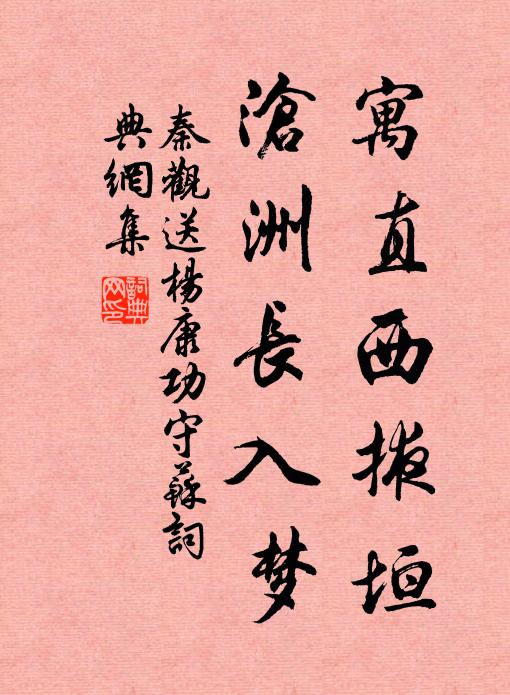 寓直西掖垣
滄洲長入梦
秦觀送楊康功守蘇詞
典網集
詞典
网印